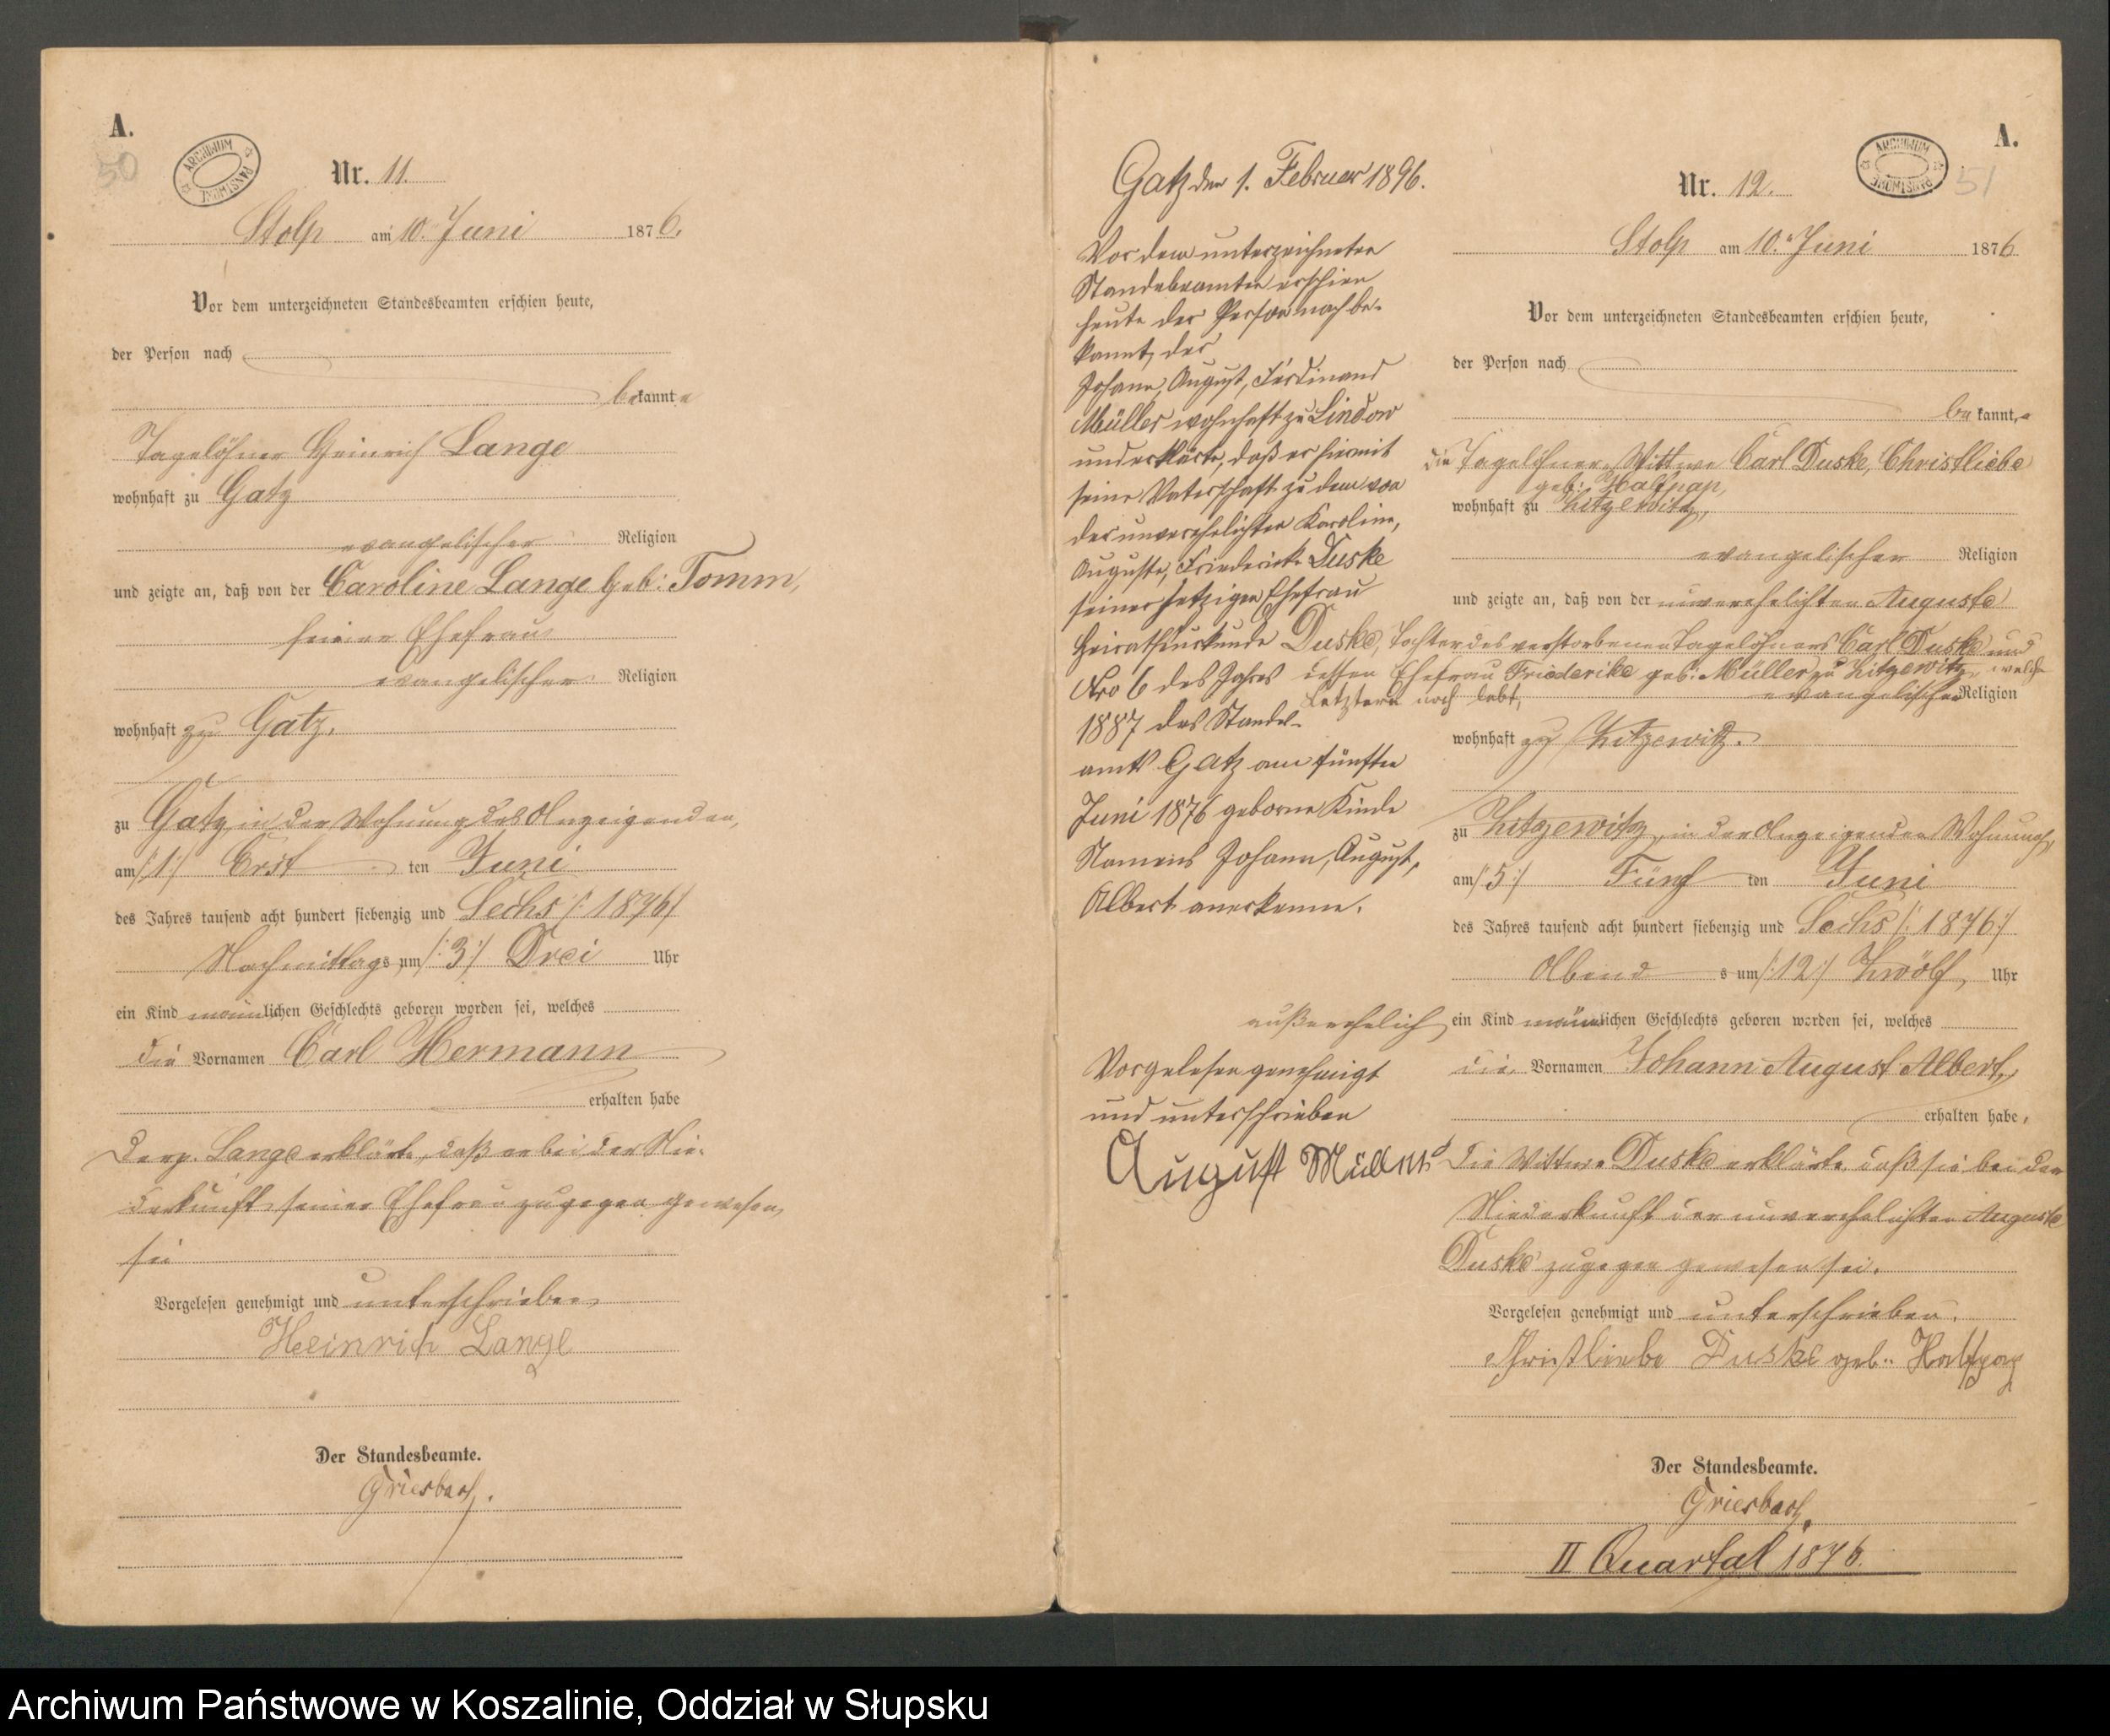 A.
50
ARCHIWUM PAŃSTWOWE
Nr. 11.
Stolp am 10. Juni 1876.
Vor dem unterzeichneten Standesbeamten erschien heute,
der Person nach
bekannte
Tagelöhner Heinrich Lange
wohnhaft zu Gatz
evangelischer Religion
und zeigte an, daß von der Caroline Lange geb: Tomm,
seiner Ehefrau
evangelischer Religion
wohnhaft zu Gatz,
zu Gatz in der Wohnung des Anzeigenden,
am /:1:/ Erst ten Juni
des Jahres tausend acht hundert siebenzig und Sechs /:1876:/
Nachmittags um /:3:/ Drei Uhr
ein Kind männlichen Geschlechts geboren worden sei, welches
die Vornamen Carl Hermann
erhalten habe
Der p. Lange erklärte, daß er bei der Nie-
derkunft seiner Ehefrau zugegen gewesen,
sei
Vorgelesen genehmigt und unterschrieben
Heinrich Lange
Der Standesbeamte.
Griesbach.
Gatz den 1. Februar 1896.
Vor dem unterzeichneten
Standesbeamten erschien
heute der Person nach be-
kannt, der
Johann, August, Ferdinand
Müller wohnhaft zu Lindow
und erklärte, daß er hiermit
seine Vaterschaft zu dem von
der unverehelichten Karoline,
Auguste, Friederike Duske
seiner jetzigen Ehefrau
Heirathsurkunde
Nro 6 des Jahres
1887 des Standes-
amts Gatz am fünften
Juni 1876 geborne Kinde
Namens Johann, August,
Albert anerkenne.
Vorgelesen genehmigt
und unterschrieben
August Müller
A.
51
ARCHIWUM PAŃSTWOWE
Nr. 12.
Stolp am 10. Juni 1876
Vor dem unterzeichneten Standesbeamten erschien heute,
der Person nach
bekannt,e
die Tagelöhner Wittwe Carl Duske, Christliebe
geb: Halfpap,
wohnhaft zu Zitzewitz,
evangelischer Religion
und zeigte an, daß von der unverehelichten Auguste
Duske, Tochter des verstorbenen Tagelöhners Carl Duske und
dessen Ehefrau Friederike geb: Müller zu Zitzewitz, welche
Letztere noch lebt, evangelischer Religion
wohnhaft zu Zitzewitz.
zu Zitzewitz, in der Anzeigenden Wohnung,
am /:5:/ Fünf ten Juni
des Jahres tausend acht hundert siebenzig und Sechs /:1876:/
Abend s um /:12:/ Zwölf, Uhr
außerehelich ein Kind männlichen Geschlechts geboren worden sei, welches
die Vornamen Johann August Albert,
erhalten habe,
Die Wittwe Duske erklärte daß sie bei der
Niederkunft der unverehelichten Auguste
Duske zugegen gewesen sei.
Vorgelesen genehmigt und unterschrieben.
Christliebe Duske geb. Halfpap
Der Standesbeamte.
Griesbach.
II Quartal 1876.
Archiwum Państwowe w Koszalinie, Oddział w Słupsku